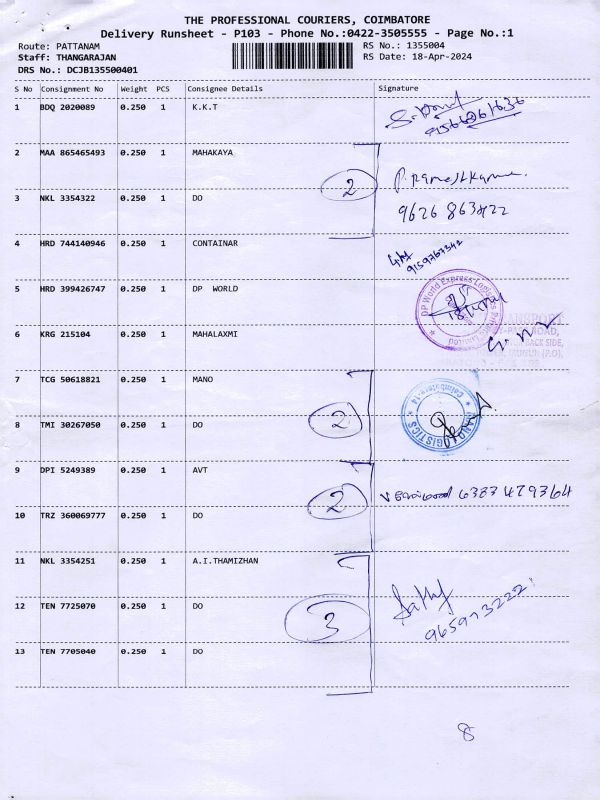 THE PROFESSIONAL COURIERS, COIMBATORE
Delivery Runsheet - P103 - Phone No.:0422-3505555 - Page No.:1
Route: PATTANAM RS No.: 1355004
Staff: THANGARAJAN RS Date: 18-Apr-2024
DRS No.: DCJB135500401
S No Consignment No Weight PCS Consignee Details Signature
1 BDQ 2020089 0.250 1 K.K.T
2 MAA 865465493 0.250 1 MAHAKAYA
2 P. Rameshkumar.
3 NKL 3354322 0.250 1 DO 9626 863422
4 HRD 744140946 0.250 1 CONTAINAR
9159767342
5 HRD 399426747 0.250 1 DP WORLD
DP World Express Logistics Private Limited
6 KRG 215104 0.250 1 MAHALAXMI
7 TCG 50618821 0.250 1 MANO
MANO LOGISTICS
Coimbatore-14
8 TMI 30267050 0.250 1 DO 2
9 DPI 5249389 0.250 1 AVT
2 6383 479364
10 TRZ 360069777 0.250 1 DO
11 NKL 3354251 0.250 1 A.I.THAMIZHAN
12 TEN 7725070 0.250 1 DO 3
13 TEN 7705040 0.250 1 DO
8